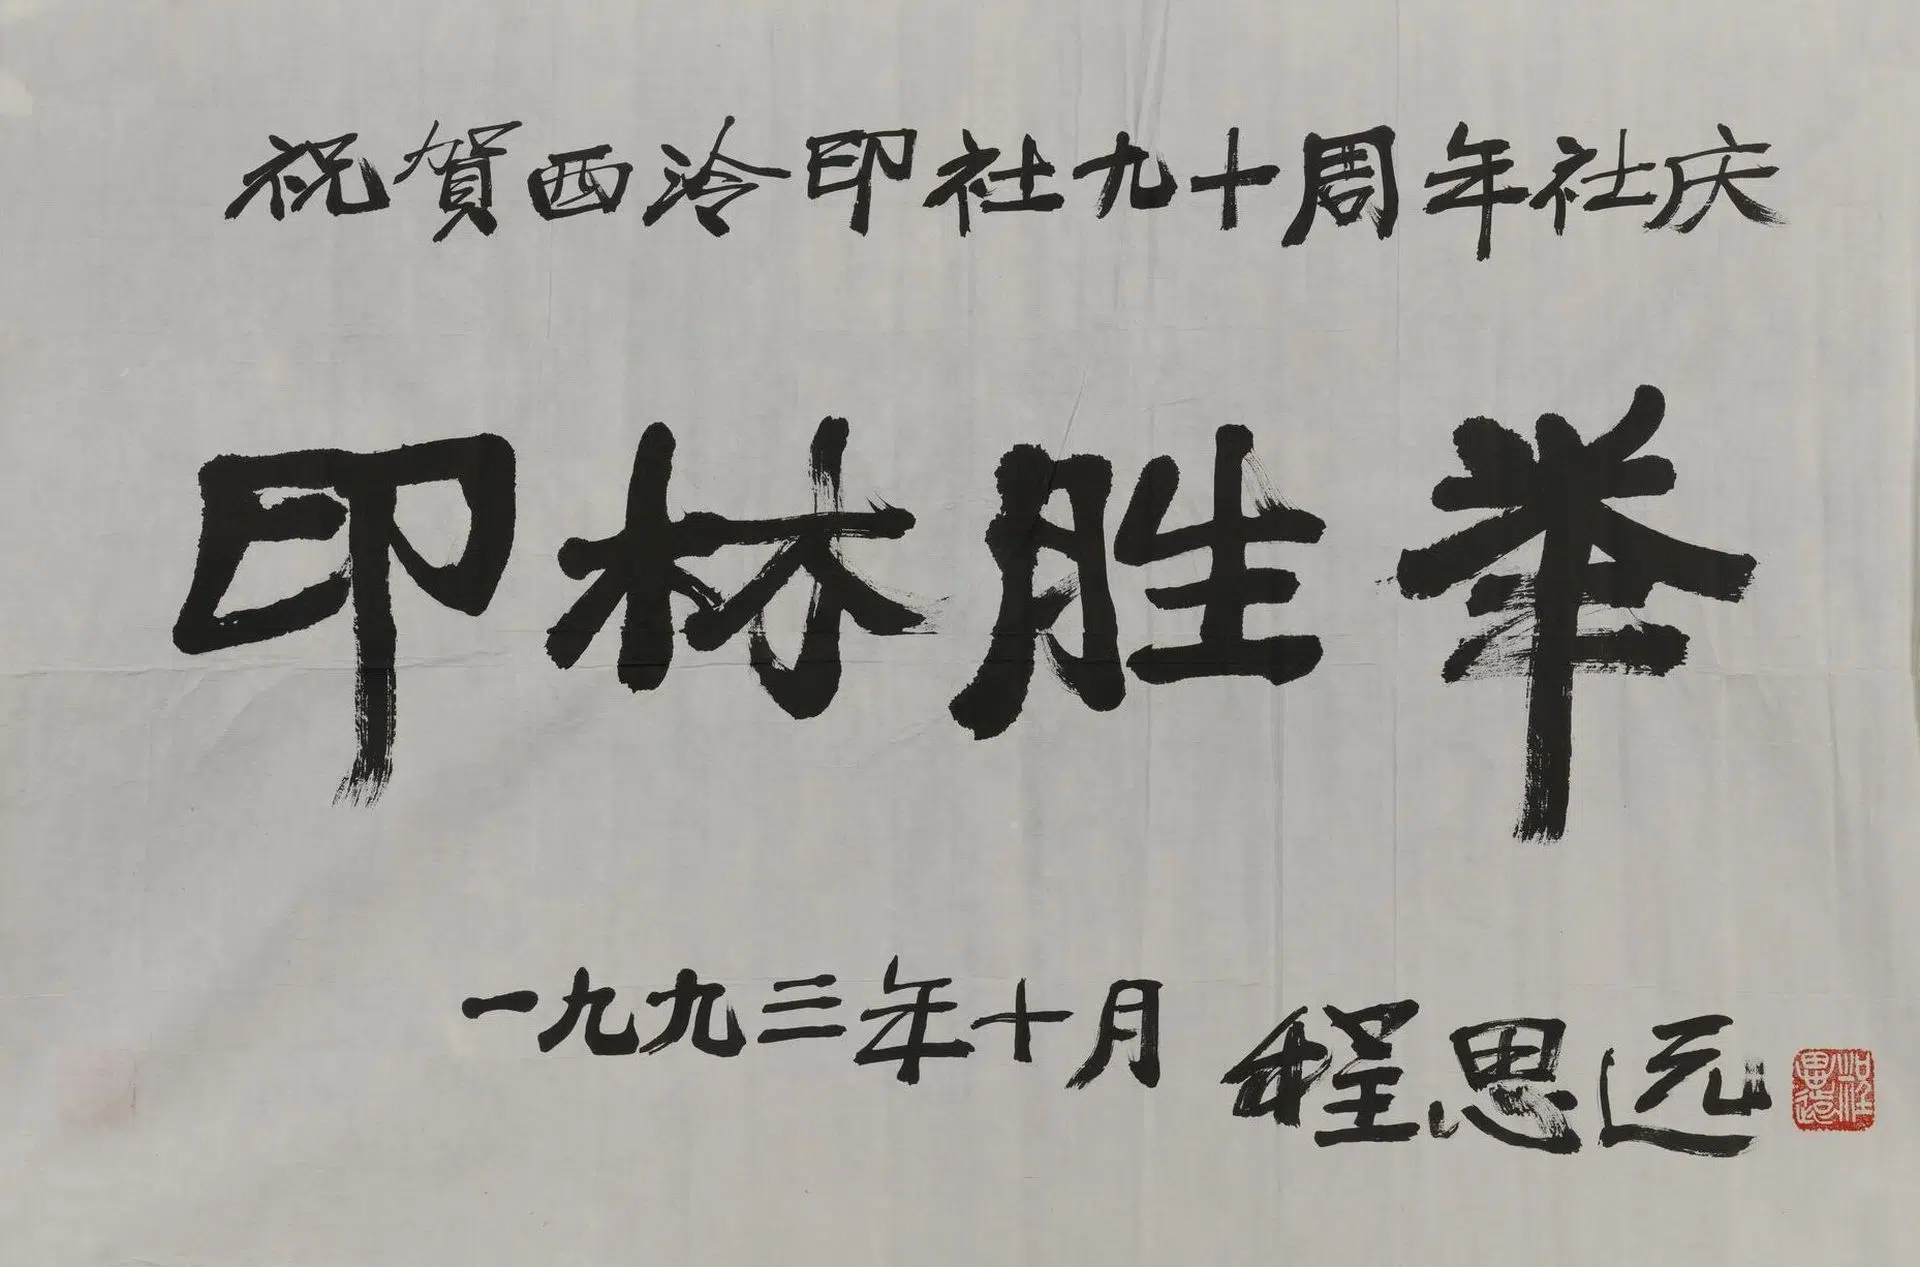 祝賀西泠印社九十周年社庆
印林胜举
一九九三年十月 程思远